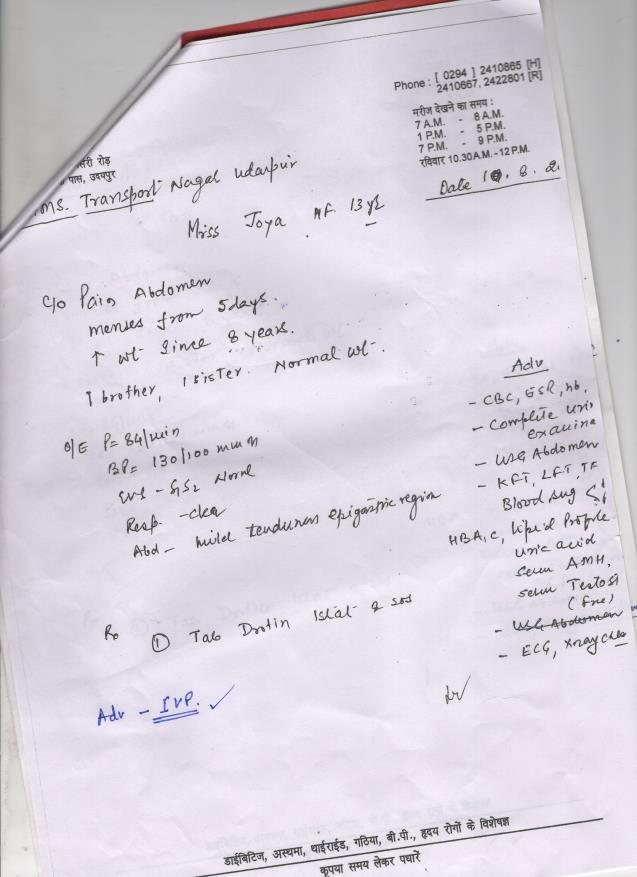 Phone : [ 0294 ] 2410865 [H]
2410667, 2422801 [R]
मरीज देखने का समय :
7 A.M. - 8 A.M.
1 P.M. - 5 P.M.
7 P.M. - 9 P.M.
रविवार 10.30 A.M.-12 P.M.
रोड़
पास, उदयपुर
Transport Nagal Udaipur
Date 10.8.2
Miss Joya 13 yr
c/o Pain Abdomen
menses from 5 days.
↑ wt since 8 years.
1 brother, 1 sister. Normal wt.
O/E P= 84/min
BP= 130/100 mm
CVS - S1S2
Resp. - clea
Abd - mild tenderness epigastric region
Adv
- CBC, ESR, Hb,
- Complete Urin
examina
- USG Abdomen
- KFT, LFT, TF
Blood Sug
HBA1C, Lipid Profile
uric acid
serum AMH,
serum Testost
(free)
- USG Abdomen
- ECG, Xray
Rx ① Tab Drotin 1stat & sos
Adv - IVP. ✓
डाईबिटिज, अस्थमा, थाईराईड, गठिया, बी.पी., हृदय रोगों के विशेषज्ञ
कृपया समय लेकर पधारें